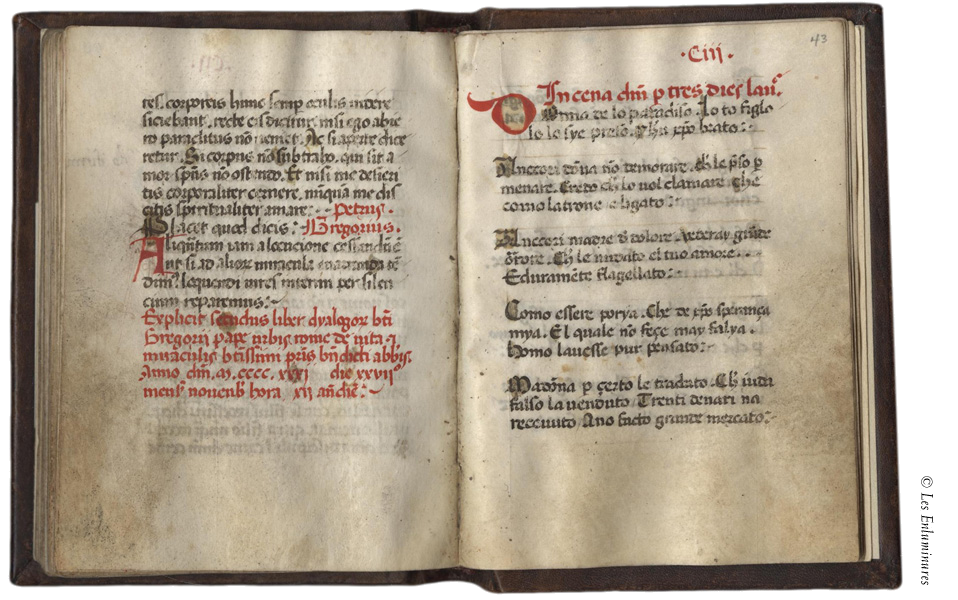 tes. corporeis hunc semp oculis videre
sitiebant. recte eis dicitur. nisi ego abie
ro paraclitus nō venit. Ac si aperte dice
retur. Si corpus nō subtraho. qui sit a
mor spūs nō ostendo. Et nisi me desieri
tis corporaliter cernere. nūquā me dis
citis spiritualiter amare. Petrus.
Placet quod dicis. Gregorius.
Aliqūtum iam a locucione cessandū ē
Aut si ad alior miracula
loquendi vires interim per silen
cium reparemus.
Explicit secūdus liber dyalogor bti
Gregorii pape urbis rome de vita 7
miraculis btissimi pris bn̄dicti abbis
Anno dm̄. m. cccc. xxxi die xxvii
mensis novenb hora xii
43
.Ciij.
In cena dm̄ p tres dies lau.
Donna de lo paradiso. Lo to figlo
lo le sye preso. Yhu xpo beato.
Anccori dōna nō demorare. Ch le pso p
menare. Creto ch lo vol clamare. Che
como latrone e ligato.
Anccori madre d dolore.
Ch le nudato el tuo amore.
E duramēte flagellato.
Como essere porya. Che de xpo sperança
mya. El quale no feçe may falya.
Homo lavesse pur pensato.
Madōna p çerto le tradato. Ch iuda
falso la venduto Trenti denari na
recevuto Ano facto grande mercato.
© Les Enluminures